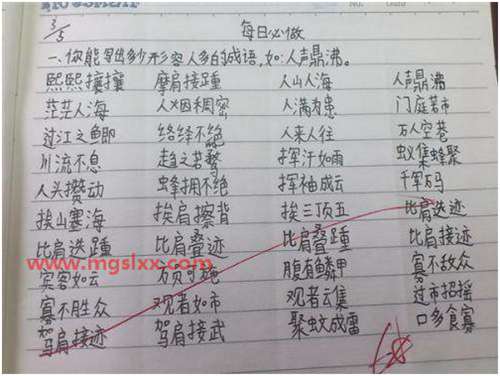 3/5 每日必做
一、你能写出多少形容人多的成语,如:人声鼎沸。
熙熙攘攘 摩肩接踵 人山人海 人声鼎沸
茫茫人海 人烟稠密 人满为患 门庭若市
过江之鲫 络绎不绝 人来人往 万人空巷
川流不息 趋之若鹜 挥汗如雨 蚁集蜂聚
人头攒动 蜂拥不绝 挥袖成云 千军万马
挨山塞海 挨肩擦背 挨三顶五 比肩迭迹
比肩迭踵 比肩叠迹 比肩叠踵 比肩接迹
www.mgslxx.com
宾客如云 腹有鳞甲 寡不敌众
寡不胜众 观者如市 观者云集 过市招摇
驾肩接迹 驾肩接武 聚蚊成雷 口多食寡